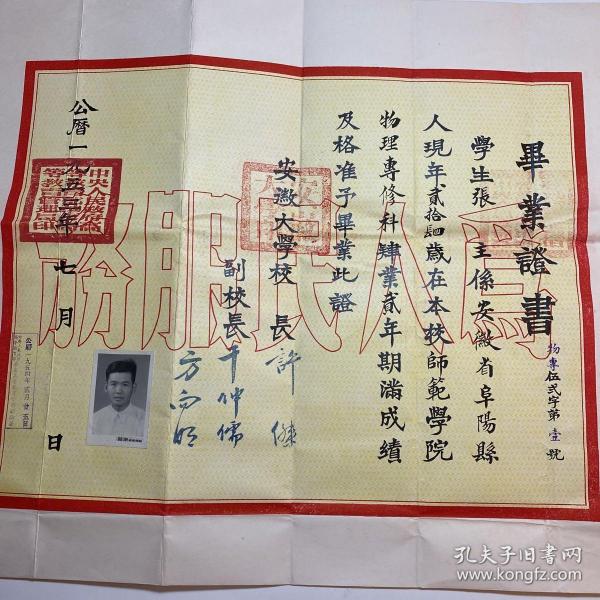 畢業證書
物專伍弍字第壹號
學生張 主係安徽省阜陽縣
人現年貳拾肆歲在本校師範學院
物理專修科肄業貳年期滿成績
及格准予畢業此證
安徽大學校長許傑
副校長
公曆一九五三年七月 日
為人民服務
公曆一九五四年貳月廿五日
孔夫子旧书网
www.kongfz.com